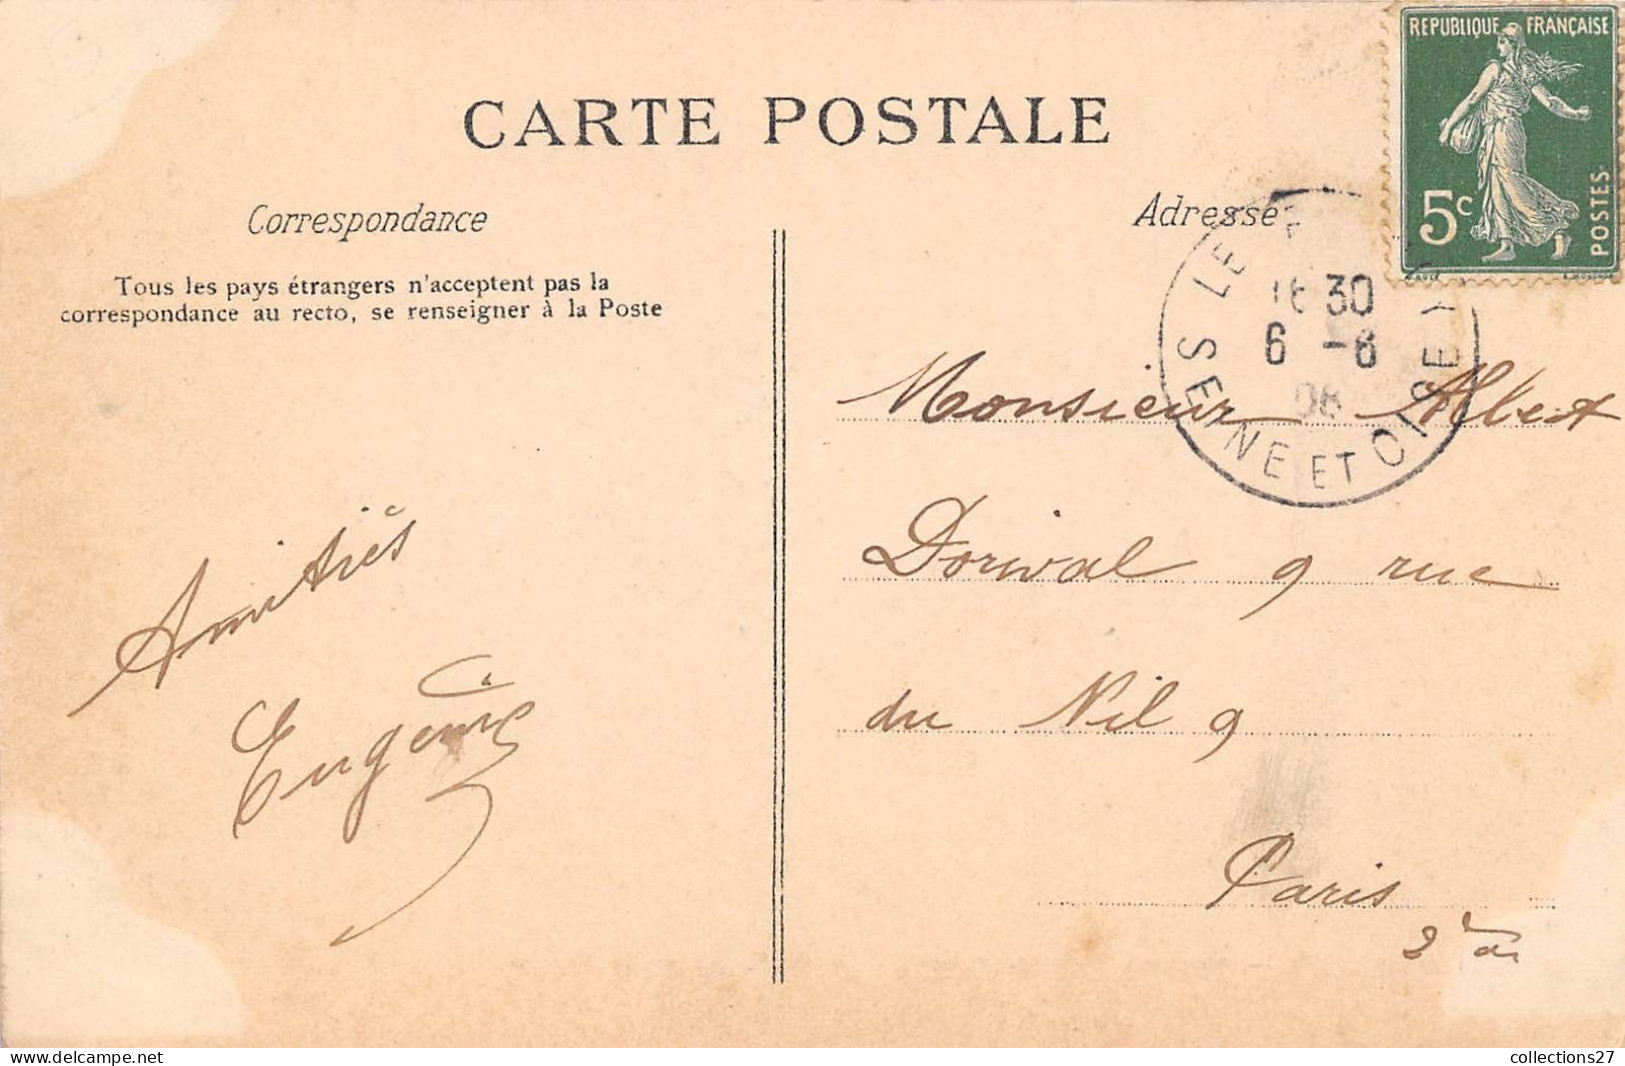 CARTE POSTALE
REPUBLIQUE FRANÇAISE
5c
POSTES
Correspondance
Tous les pays étrangers n'acceptent pas la
correspondance au recto, se renseigner à la Poste
Adresse
LE
16 30
6 -8
08
SEINE ET OISE
Monsieur Albert
Dorival 9 rue
du Nil 9
Paris
Amitiés
Eugénie
collections27